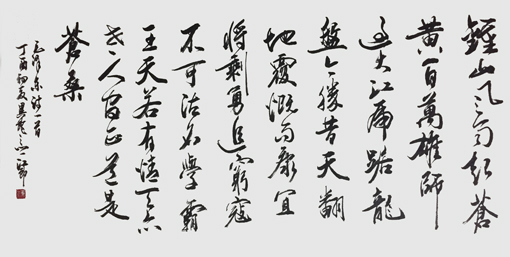 鍾山风雨起蒼
黄百萬雄師
過大江虎踞龍
盤今勝昔天翻
地覆慨而慷宜
将剩勇追窮寇
不可沽名學霸
王天若有情天亦
老人间正道是
蒼桑
毛泽东诗一首
丁酉初夏